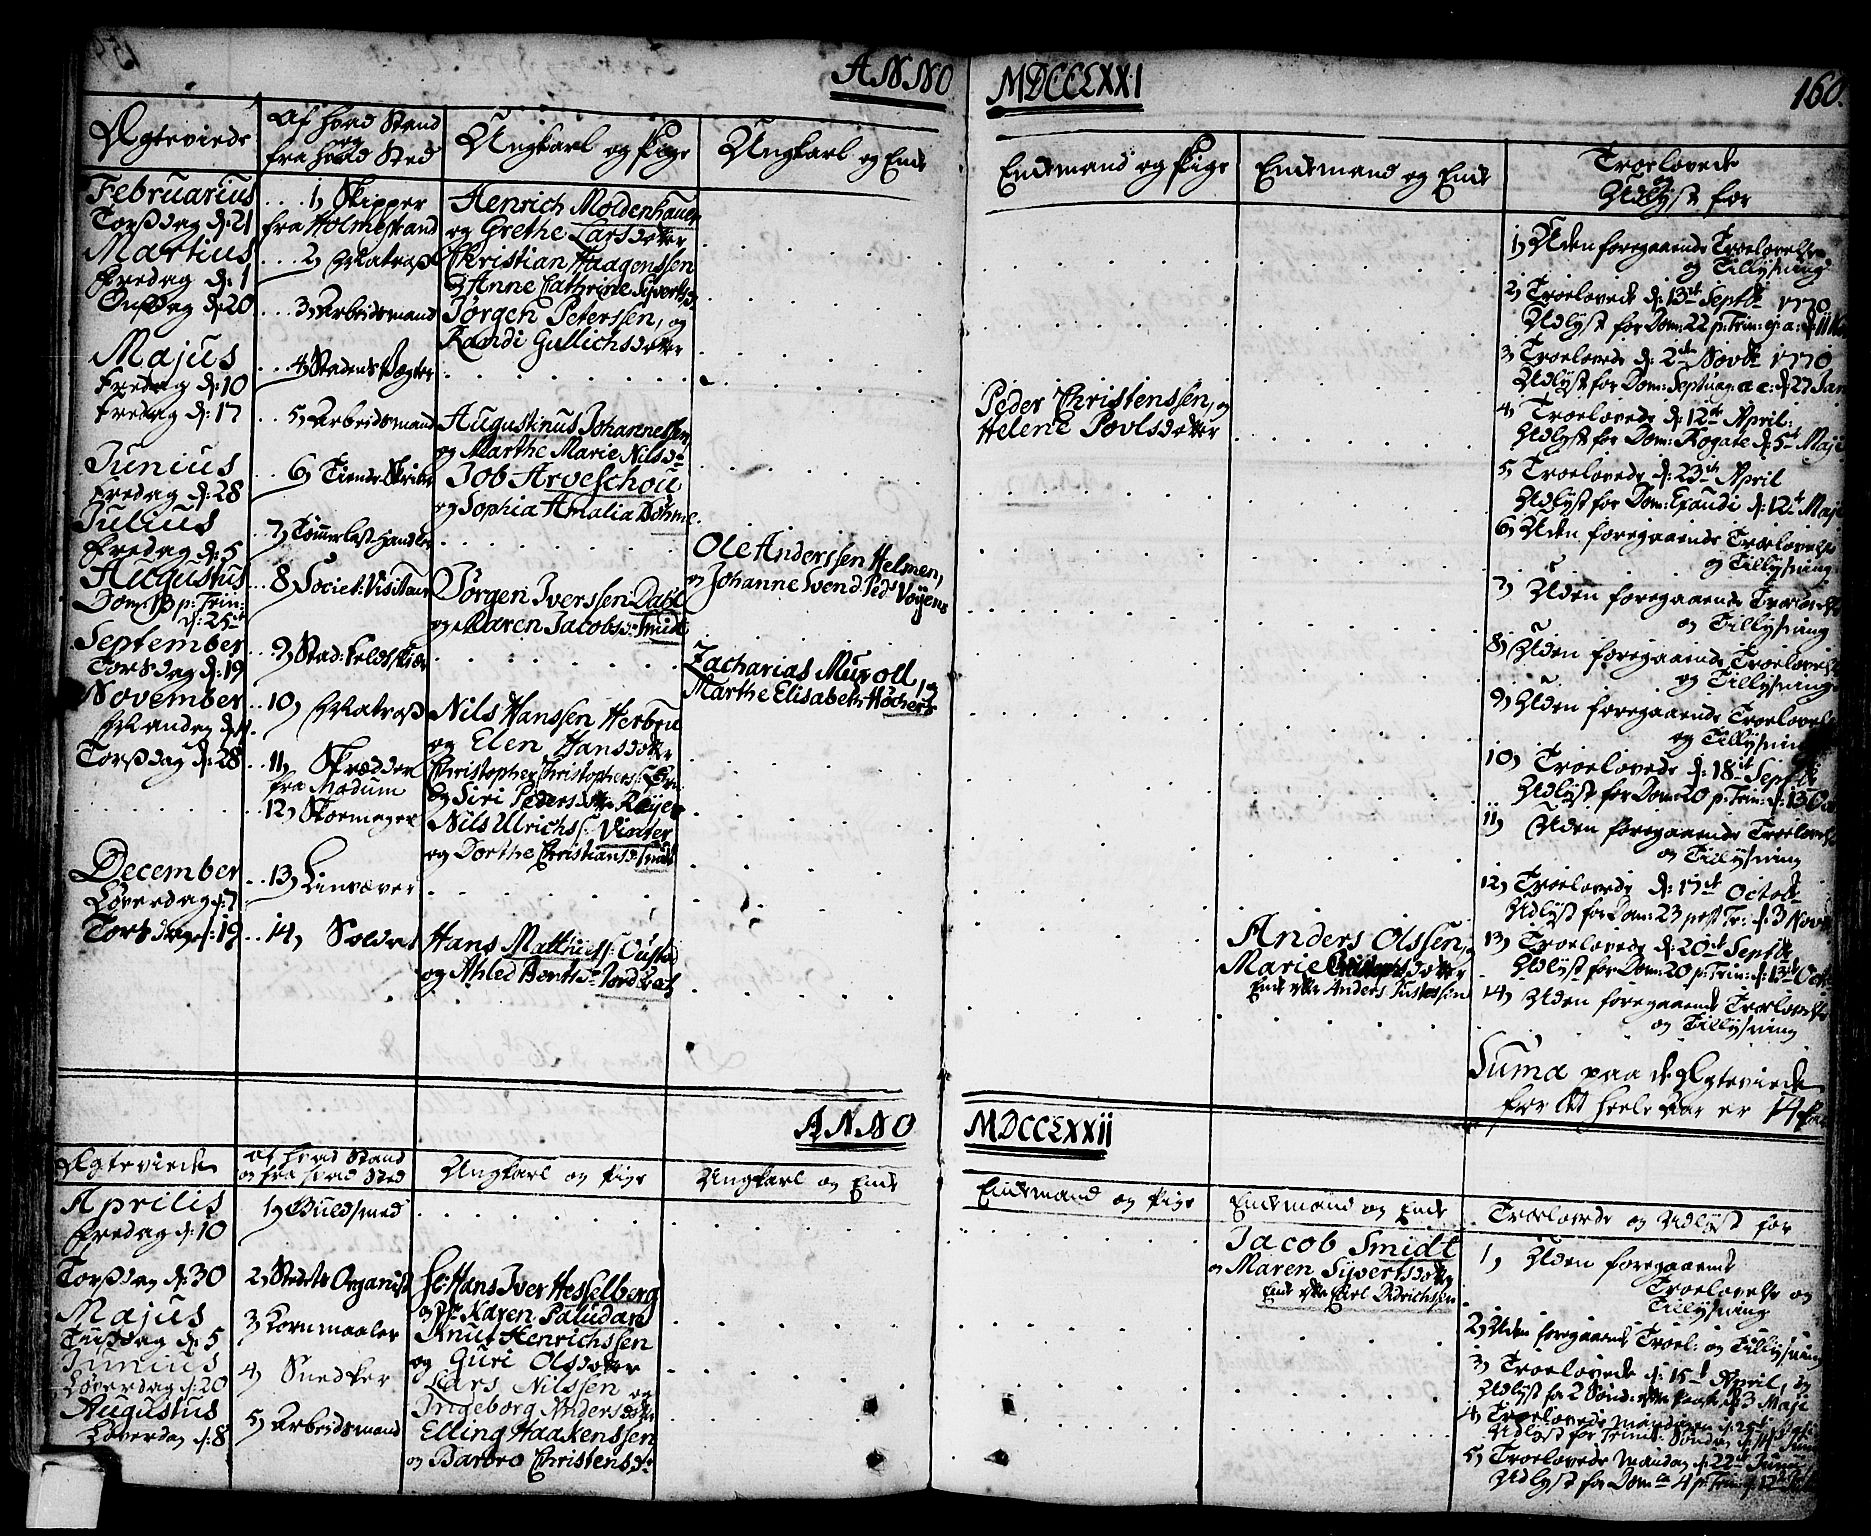 ANNO MDCCLXXI
160.
Ægteviede
Af hvad Stand
og
fra hvad Sted
Ungkarl og Pige
Ungkarl og Enke
Enkemand og Pige
Enkemand og Enke
Troelovede
Udlyst for
Februarius
Torsdag d: 21
1, Skipper
fra Holmestrand
Henrich Moldenhauer
og Grethe Larsdatter
1, Uden foregaaende Troelovelse
og Tillysning
Martius
Fredag d: 1
2, Matros
Christian Haagenssen
og Anne Cathrine Syvertsd
2, Troelovede d: 13de Septbr 1770
Udlyst for Dom: 22 p: Trin:
Onsdag d: 20
3, Arbeidsmand
Jørgen Peterssen, og
Randi Gullichsdatter
3, Troelovede d: 2den Novbr 1770
Udlyst for Dom: Septuag: a c: d: 27 Jan
Majus
Fredag d: 10
4, Stadens Vægter
Peder Christenssen, og
Helene Povlsdatter
4, Troelovede d: 12te April:
Udlyst for Dom: Rogate d: 5te Maji
Fredag d: 17
5, Arbeidsmand
Augustinus Johannessen
og Marthe Marie Nilsdr
5, Troelovede d: 23de April
Udlyst for Dom: Exaudi d: 12te Maji
Junius
Fredag d: 28
6, Tiende-Skriber
Job Arveschou
og Sophia Amalia Bøhme
6, Uden foregaaende Troelovelse
og Tillysning
Julius
Fredag d: 5
7, Tømmerlast handler
Ole Anderssen Helmen,
og Johanne Svend Ped: Voyens
7, Uden foregaaende Troelovelse
og Tillysning
Augustus
Dom: 13 p: Trin:
d: 25de
8, Societ: Visiteur
Jørgen Iverssen Dahl
og Maren Jacobsdr Smidt
8, Uden foregaaende Troelovelse
og Tillysning
September
Torsdag d: 19
9, Stad-Feldskiær
Zacharias Muxoll, og
Marthe Elisabeth Høchers
9, Uden foregaaende Troelovelse
og Tillysning
November
Mandag d:
10, Matros
Nils Hanssen Herbru
og Elen Hansdatter
10, Troelovede d: 18de Septbr
Udlyst for Dom: 20 p: Trin: d: 13 Oct
Torsdag d: 28
11, Skrædder
fra Modum
Christopher Christophers:
og Siri Pedersdatter Røyer
11, Uden foregaaende Troelovelse
og Tillysning
12, Skoemager
Nils Ulrichs: Vinter
og Dorthe Christiansd: Smidt
12, Troelovede d: 17de Octobr
Udlyst for Dom: 23 post Tr: d: 3 Novb
December
Løverdag d: 7
13, Linvæver
Anders Olssen,
Marie Christophersdatter
Enke efter Anders Justessen
13, Troelovede d: 20de Septbr
Udlyst for Dom: 20 p: Trin: d: 13de Oct
Torsdag d: 19
14, Soldat
Hans Mathies:
og Ahled Bentsdr
14, Uden foregaaende Troelovelse
og Tillysning
Suma paa de Ægteviede
for det heele Aar er 14 Par
ANNO MDCCLXXII
Ægteviede
Af hvad Stand
og fra hvad Sted
Ungkarl og Pige
Ungkarl og Enke
Enkemand og Pige
Enkemand og Enke
Troelovede og Udlyst for
Aprilis
Fredag d: 10
1, Guldsmed
Jacob Smidt
og Maren Syvertsdatter
Enke efter Carl Didrichssen
1, Uden foregaaende
Troelovelse og
Tillysning
Torsdag d: 30
2, Stedets Organist
Sr: Hans Iver Hesselberg
og Jfr Karen Paludan
2, Uden foregaaende Troel: og Tillysning
Majus
Tiisdag d: 5
3, Kornmaaler
Knut Henrichssen
og Guri Olsdatter
3, Troelovede d: 15de April, og
Udlyst fra 2 Sönd: efter Paaske d: 3 Maji
Junius
Løverdag d: 20
4, Snedker
Lars Nilssen og
Ingeborg Andersdatter
4, Troelovede Mandagen d: 25de
Udlyst for Trinit: Søndag d: 14 Juni
Augustus
Løverdag d: 8
5, Arbeidsmand
Elling Haakenssen
og Barbro Christensdr
5, Troelovede Mandag d: 22de Junii
Udlyst for Dom: 4 p: Trin: d: 12te